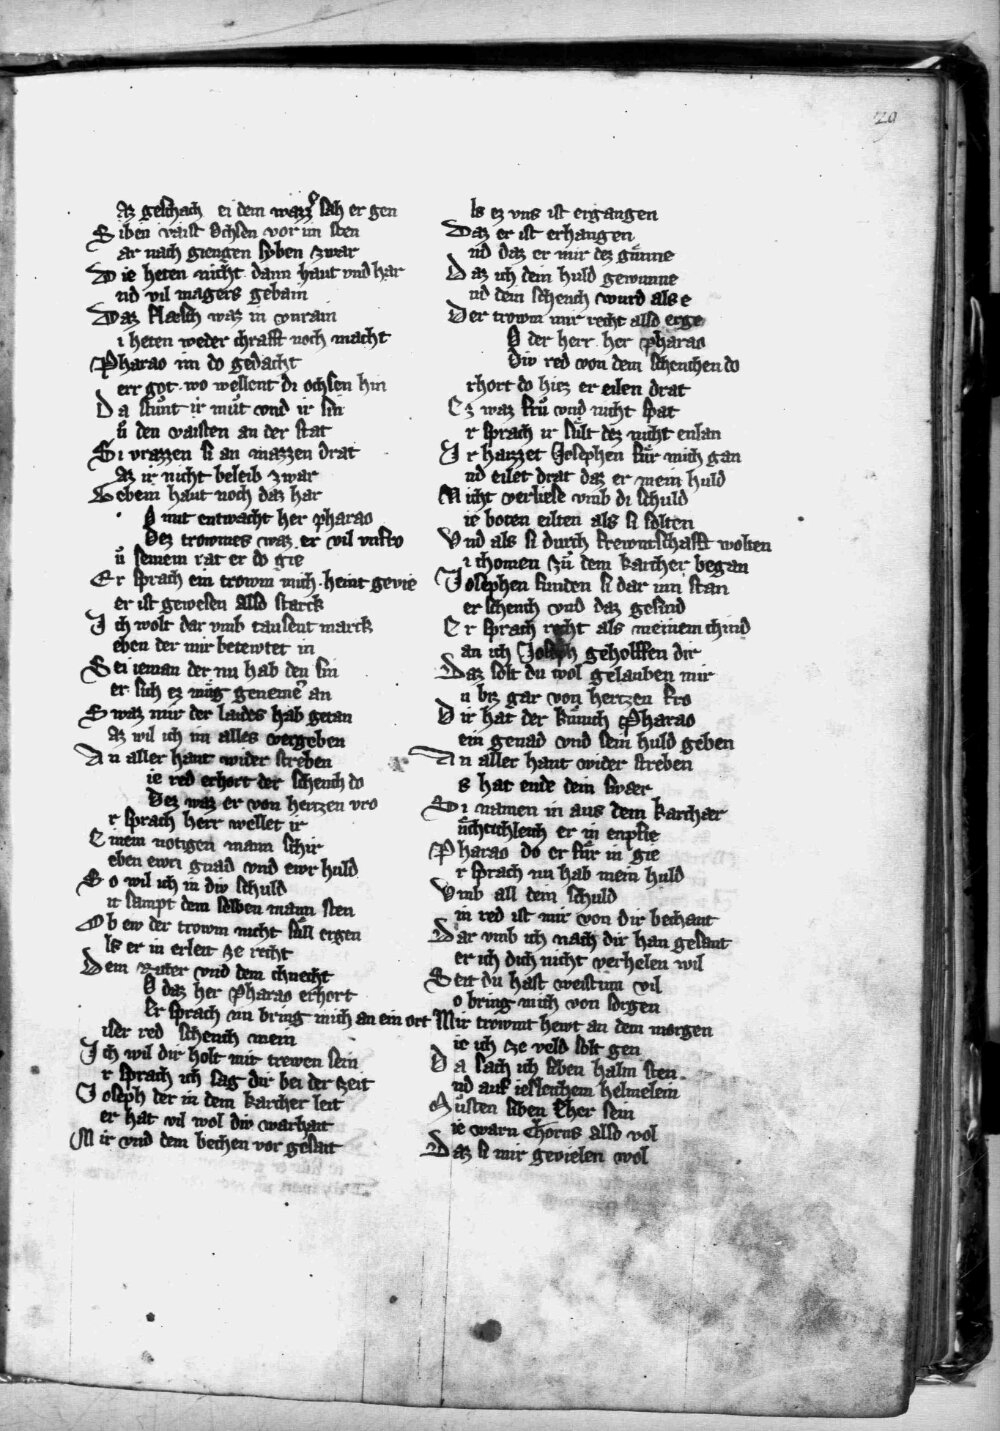 29
az geschach ei dem wazzer sah er gen
Siben vaist Ochsen vor im sten
ar nach giengen syben zwar
Die heten nicht dann haut vnd har
nd vil magers gebain
Daz flæsch waz in vnrain
i heten weder chrafft noch macht
Pharao im do gedacht
err got wo wellent di ochsen hin
Da stůnt ir můt vnd ir sin
ů den vaisten an der stat
Si vrazzen si an mazzen drat
az ir nicht beleib zwar
Nebem haut noch daz har
O mit entwacht her pharao
Dez trowmes waz er vil vnfro
ů seinem rat er do gie
Er sprach ein trowm mich heint gevie
er ist gewesen also starck
Ich wolt dar vmb tausent marck
eben der mir betewtet in
Sei ieman der nu hab den sin
er sich ez můg genemen an
Swaz mir der laides hab getan
az wil ich im alles vergeben
An aller hant wider streben
ie red erhort der schench do
Dez waz er von hertzen vro
r sprach herr wellet ir
Einem notigen mann schir
eben ewr gnad vnd ewr huld
So wil ich in div schuld
it sampt dem selben mann sten
Ob ew der trowm nicht sůll ergen
ls er in erleit ze recht
Dem Ritter vnd dem chnecht
O daz her Pharao erhort
Er sprach nu bring mich an ein ort
iser red schench mein
Ich wil dir holt mit trewen sein
r sprach ich sag dir bei der zeit
Joseph der in dem karcher leit
er hat vil wol div warhait
Mir vnd dem bechen vor gesait
ls ez vns ist ergangen
Daz er ist erhangen
nd daz er mir dez gůnne
Daz ich dein huld gewunne
nd dein schench wurd als e
Der trowm mir recht also erge
O der herr her pharao
Div red von dem schenchen do
rhort do hiez er eilen drat
Ez waz frů vnd nicht spat
r sprach ir sůlt dez nicht enlan
Ir haizzet Josephen fůr mich gan
nd eilet drat daz er mein huld
Nicht verliese vmb di schuld
ie boten eilten als si solten
Vnd als si durch frewntschafft wolten
i chomen zů dem karcher began
Josephen funden si dar inn stan
er schench vnd daz gesind
Er sprach recht als meinem chind
an ich Joseph geholffen dir
Daz solt du wol gelauben mir
u biz gar von hertzen fro
Dir hat der kůnich Pharao
ein genad vnd sein huld geben
An aller hant wider streben
s hat ende dein swær
Si namen in aus dem karchær
ůchtichleich er in enpfie
Pharao do er fůr in gie
r sprach nu hab mein huld
Vmb all dein schuld
in red ist mir von dir bechant
Dar vmb ich nach dir han gesant
er ich dich nicht verhelen wil
Seit du hast weistum vil
o bring mich von sorgen
Mir trowmt hewt an dem morgen
ie ich ze veld solt gen
Da sach ich siben halm sten
nd auf iesleichem helmelein
Můsten siben Eher sein
ie warn Chorns also vol
Daz si mir gevielen wol